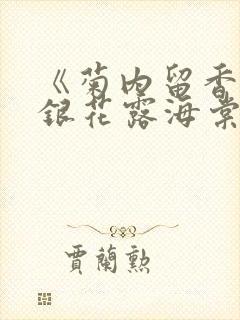 《菊内留香
銀花露海棠
賈蘭勲